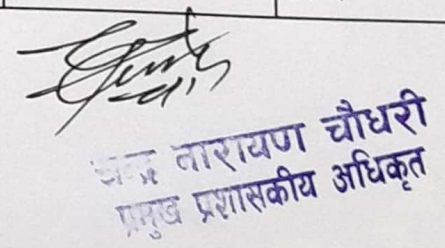 चन्द्र नारायण चौधरी
प्रमुख प्रशासकीय अधिकृत